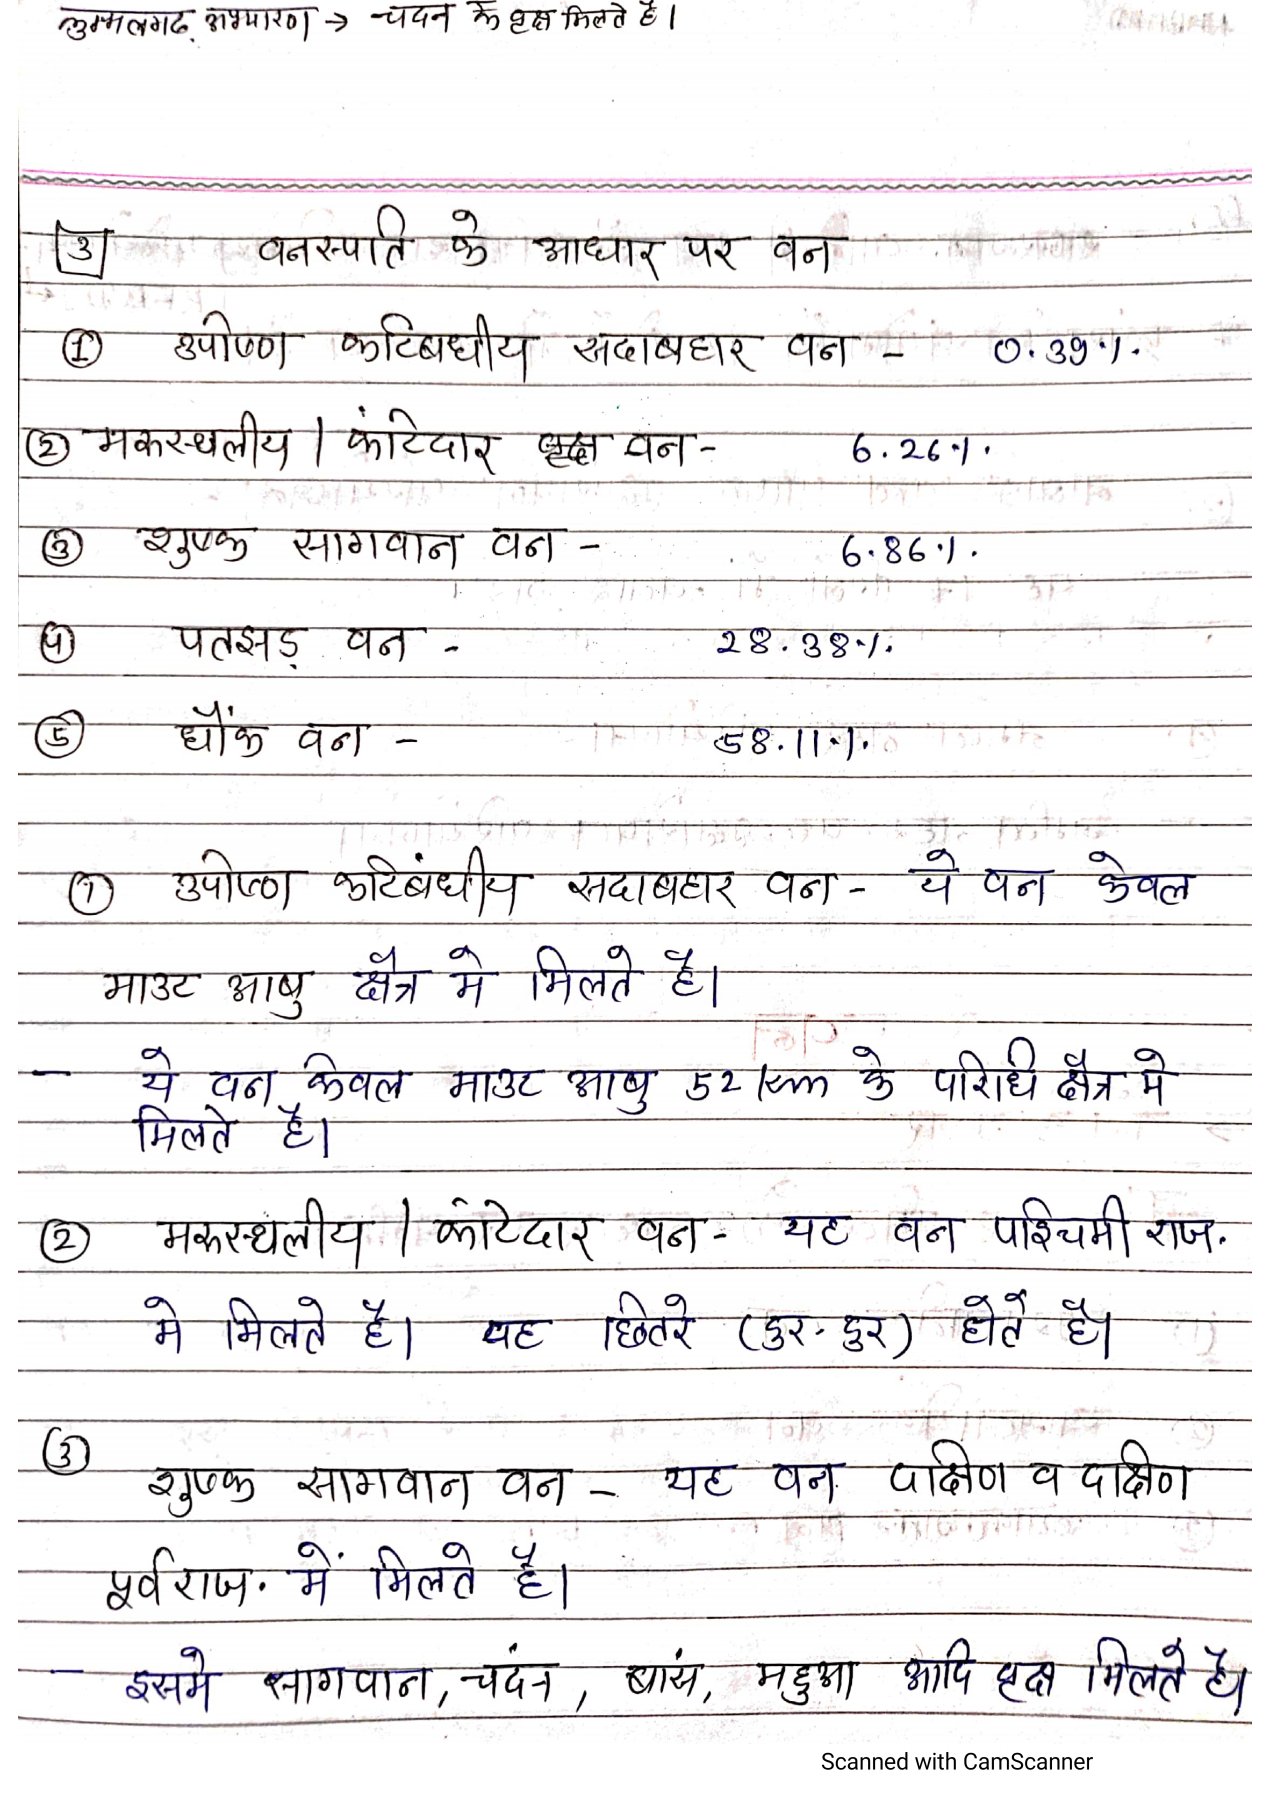 कुम्भलगढ़ अभ्यारण → चदन के वृक्ष मिलते है।
3 वनस्पति के आधार पर वन
① उपोष्ण कटिबधीय सदाबहार वन - 0.39%.
② मरूस्थलीय / कंटिदार वृक्ष वन - 6.26%.
③ शुष्क सागवान वन - 6.86%.
④ पतझड़ वन - 28.38%.
⑤ धौंक वन - 58.11%.
① उपोष्ण कटिबंधीय सदाबहार वन - ये वन केवल
माउट आबु क्षैत्र मे मिलते है।
- ये वन केवल माउट आबु 52 km के परिधि क्षैत्र मे
मिलते है।
② मरूस्थलीय / कांटेदार वन - यह वन पश्चिमी राज.
मे मिलते है। यह छितरे (दुर-दुर) होते है।
③
शुष्क सागवान वन - यह वन दक्षिण व दक्षिण
पूर्व राज. में मिलते है।
- इसमे सागवान, चदंन, बांस, महुआ आदि वृक्ष मिलते है।
Scanned with CamScanner